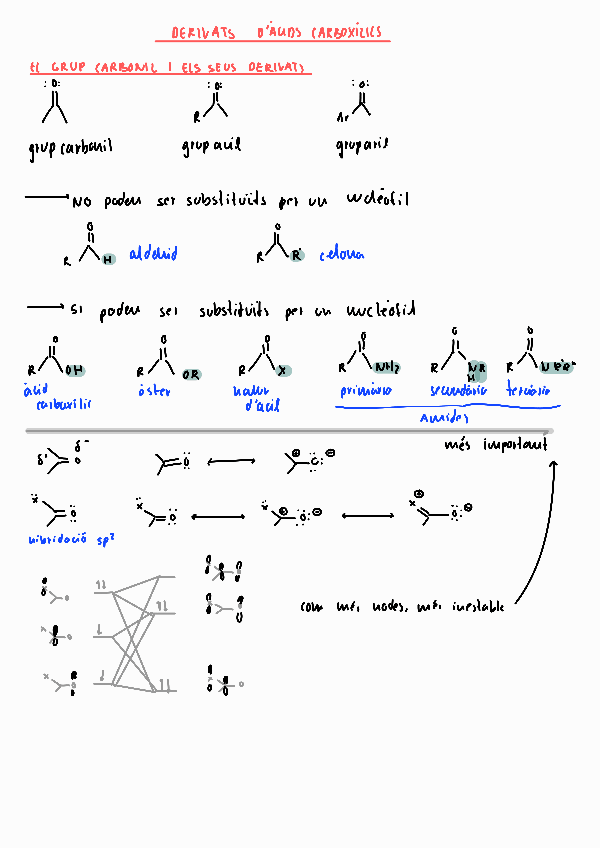 DERIVATS D'ÀCIDS CARBOXÍLICS
EL GRUP CARBONIL I ELS SEUS DERIVATS
:O: :O: :O:
R Ar
grup carbonil grup acil grup aril
NO poden ser substituïts per un nucleòfil
O O
R H aldehid R R' cetona
SI poden ser substituïts per un nucleòfil
O O O O O O
R OH R OR R X R NH2 R NR H R NR'R''
àcid carboxílic èster halur d'àcil primària secundària terciària
amides
més important
δ+ δ- O O O
X O X O X O X O
hibridació sp2
com més nodes, més inestable
X O
X O
X O